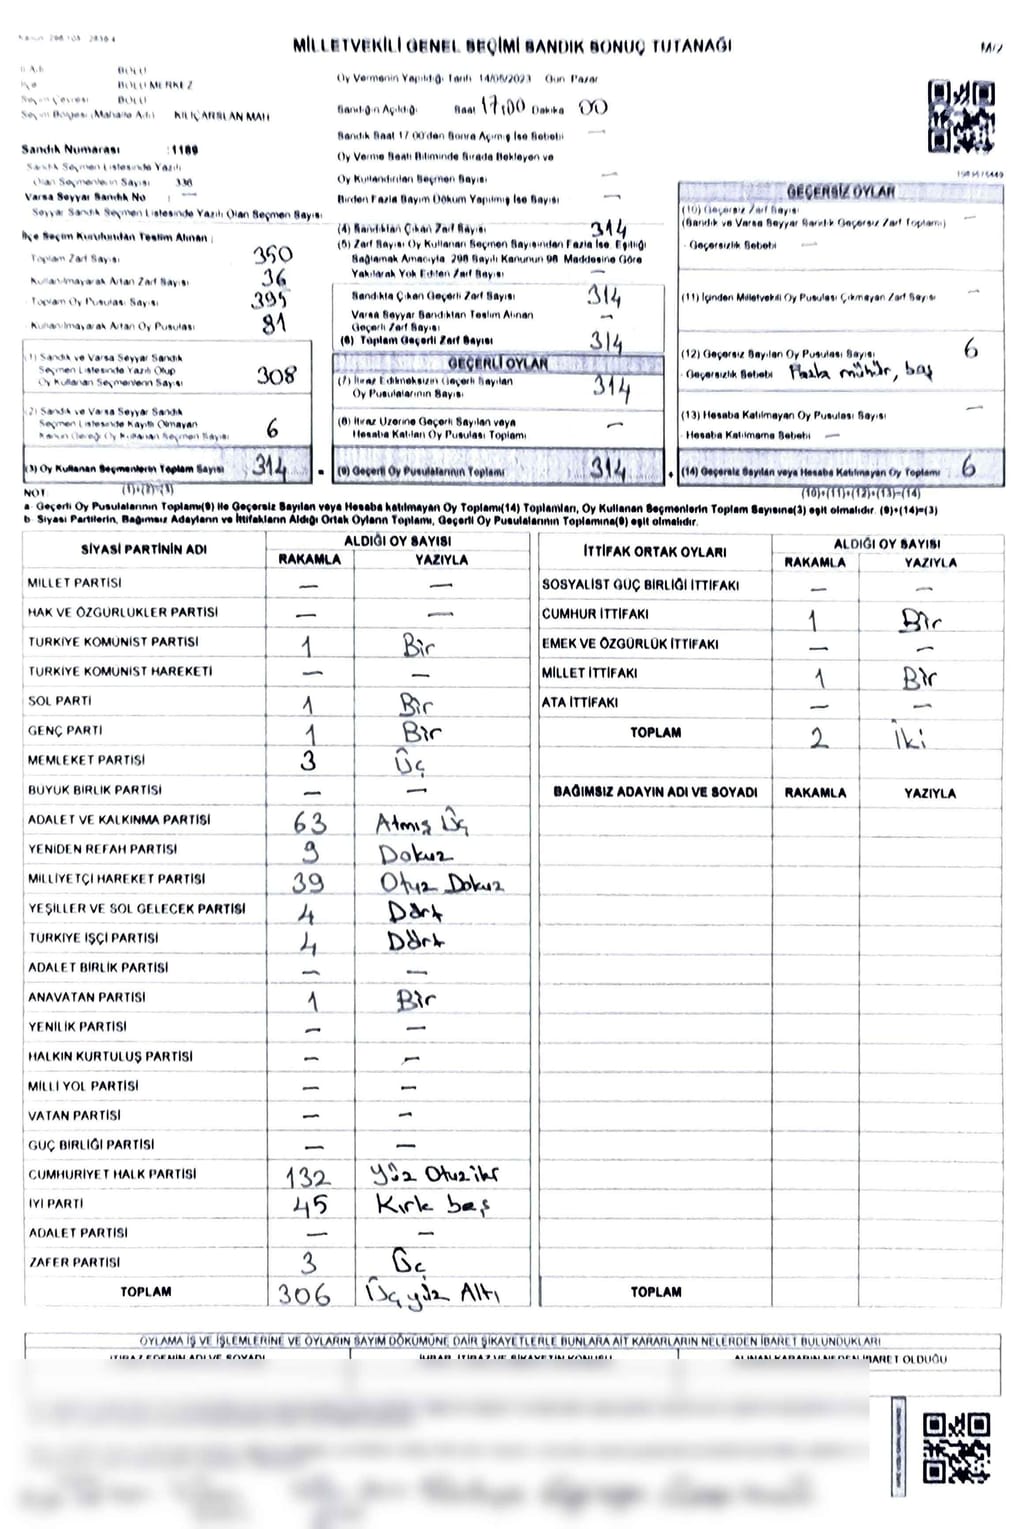 Kanun: 298.105 2839.4
MİLLETVEKİLİ GENEL SEÇİMİ SANDIK SONUÇ TUTANAĞI
M/2
İl Adı BOLU
İlçe BOLU MERKEZ
Seçim Çevresi BOLU
Seçim Bölgesi (Mahalle Adı) KILIÇARSLAN MAH
Sandık Numarası : 1189
Sandık Seçmen Listesinde Yazılı
Olan Seçmenlerin Sayısı 336
Varsa Seyyar Sandık No : —
Seyyar Sandık Seçmen Listesinde Yazılı Olan Seçmen Sayısı
İlçe Seçim Kurulundan Teslim Alınan :
Toplam Zarf Sayısı 350
Kullanılmayarak Artan Zarf Sayısı 36
Toplam Oy Pusulası Sayısı 395
Kullanılmayarak Artan Oy Pusulası 81
(1) Sandık ve Varsa Seyyar Sandık
Seçmen Listesinde Yazılı Olup
Oy Kullanan Seçmenlerin Sayısı 308
(2) Sandık ve Varsa Seyyar Sandık
Seçmen Listesinde Kayıtlı Olmayan
Kanun Gereği Oy Kullanan Seçmen Sayısı 6
(3) Oy Kullanan Seçmenlerin Toplam Sayısı 314
(1)+(2)=(3)
Oy Vermenin Yapıldığı Tarih 14/05/2023 Gün Pazar
Sandığın Açıldığı Saat 17:00 Dakika 00
Sandık Saat 17:00'den Sonra Açılmış İse Sebebi —
Oy Verme Saati Bitiminde Sırada Bekleyen ve
Oy Kullandırılan Seçmen Sayısı —
Birden Fazla Sayım Döküm Yapılmış İse Sayısı —
(4) Sandıktan Çıkan Zarf Sayısı 314
(5) Zarf Sayısı Oy Kullanan Seçmen Sayısından Fazla İse, Eşitliği
Sağlamak Amacıyla 298 Sayılı Kanunun 98. Maddesine Göre
Yakılarak Yok Edilen Zarf Sayısı —
Sandıkta Çıkan Geçerli Zarf Sayısı 314
Varsa Seyyar Sandıktan Teslim Alınan
Geçerli Zarf Sayısı —
(6) Toplam Geçerli Zarf Sayısı 314
GEÇERLİ OYLAR
(7) İtiraz Edilmeksizin Geçerli Sayılan
Oy Pusulalarının Sayısı 314
(8) İtiraz Üzerine Geçerli Sayılan veya
Hesaba Katılan Oy Pusulası Toplamı —
(9) Geçerli Oy Pusulalarının Toplamı 314
GEÇERSİZ OYLAR
(10) Geçersiz Zarf Sayısı
(Sandık ve Varsa Seyyar Sandık Geçersiz Zarf Toplamı) —
- Geçersizlik Sebebi —
(11) İçinden Milletvekili Oy Pusulası Çıkmayan Zarf Sayısı —
(12) Geçersiz Sayılan Oy Pusulası Sayısı 6
- Geçersizlik Sebebi Fazla mühür, boş
(13) Hesaba Katılmayan Oy Pusulası Sayısı —
- Hesaba Katılmama Sebebi —
(14) Geçersiz Sayılan veya Hesaba Katılmayan Oy Toplamı 6
(10)+(11)+(12)+(13)=(14)
NOT
a- Geçerli Oy Pusulalarının Toplamı(9) ile Geçersiz Sayılan veya Hesaba katılmayan Oy Toplamı(14) Toplamları, Oy Kullanan Seçmenlerin Toplam Sayısına(3) eşit olmalıdır. (9)+(14)=(3)
b- Siyasi Partilerin, Bağımsız Adayların ve İttifakların Aldığı Ortak Oyların Toplamı, Geçerli Oy Pusulalarının Toplamına(9) eşit olmalıdır.
SİYASİ PARTİNİN ADI ALDIĞI OY SAYISI
RAKAMLA YAZIYLA
MİLLET PARTİSİ — —
HAK VE ÖZGÜRLÜKLER PARTİSİ — —
TÜRKİYE KOMÜNİST PARTİSİ 1 Bir
TÜRKİYE KOMÜNİST HAREKETİ — —
SOL PARTİ 1 Bir
GENÇ PARTİ 1 Bir
MEMLEKET PARTİSİ 3 Üç
BÜYÜK BİRLİK PARTİSİ — —
ADALET VE KALKINMA PARTİSİ 63 Atmış Üç
YENİDEN REFAH PARTİSİ 9 Dokuz
MİLLİYETÇİ HAREKET PARTİSİ 39 Otuz Dokuz
YEŞİLLER VE SOL GELECEK PARTİSİ 4 Dört
TÜRKİYE İŞÇİ PARTİSİ 4 Dört
ADALET BİRLİK PARTİSİ — —
ANAVATAN PARTİSİ 1 Bir
YENİLİK PARTİSİ — —
HALKIN KURTULUŞ PARTİSİ — —
MİLLİ YOL PARTİSİ — —
VATAN PARTİSİ — —
GÜÇ BİRLİĞİ PARTİSİ — —
CUMHURİYET HALK PARTİSİ 132 Yüz Otuz iki
İYİ PARTİ 45 Kırk beş
ADALET PARTİSİ — —
ZAFER PARTİSİ 3 Üç
TOPLAM 306 Üçyüz Altı
İTTİFAK ORTAK OYLARI ALDIĞI OY SAYISI
RAKAMLA YAZIYLA
SOSYALİST GÜÇ BİRLİĞİ İTTİFAKI — —
CUMHUR İTTİFAKI 1 Bir
EMEK VE ÖZGÜRLÜK İTTİFAKI — —
MİLLET İTTİFAKI 1 Bir
ATA İTTİFAKI — —
TOPLAM 2 İki
BAĞIMSIZ ADAYIN ADI VE SOYADI RAKAMLA YAZIYLA
TOPLAM
OYLAMA İŞ VE İŞLEMLERİNE VE OYLARIN SAYIM DÖKÜMÜNE DAİR ŞİKAYETLERLE BUNLARA AİT KARARLARIN NELERDEN İBARET BULUNDUKLARI
İTİRAZ EDENİN ADI VE SOYADI İHBAR, İTİRAZ VE ŞİKAYETİN KONUSU ALINAN KARARIN NEDEN İBARET OLDUĞU